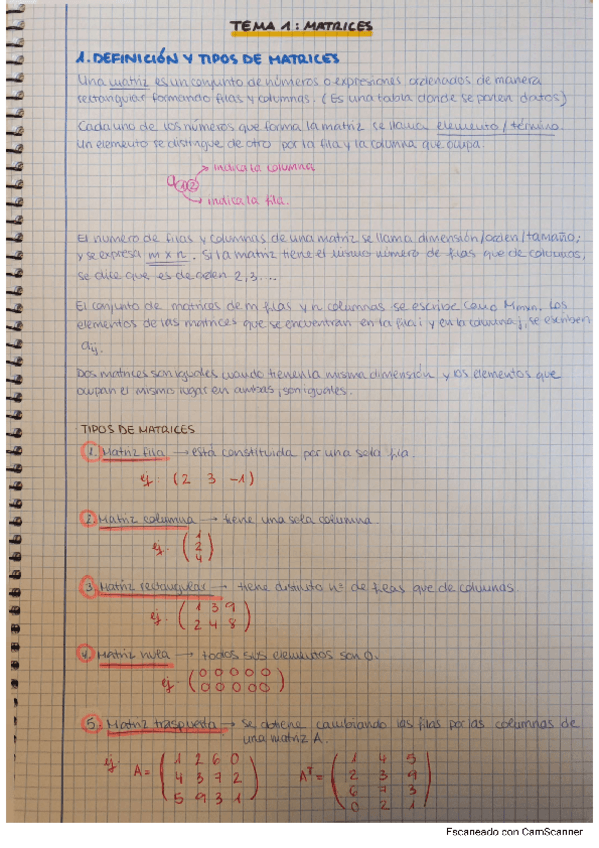 TEMA 1: MATRICES
1. DEFINICIÓN Y TIPOS DE MATRICES
Una matriz es un conjunto de números o expresiones ordenados de manera
rectangular formando filas y columnas. (Es una tabla donde se ponen datos)
Cada uno de los números que forma la matriz se llama elemento/término.
Un elemento se distingue de otro por la fila y la columna que ocupa.
a12
→ indica la columna
→ indica la fila.
El numero de filas y columnas de una matriz se llama dimensión/orden/tamaño;
y se expresa m x n. Si la matriz tiene el mismo número de filas que de columnas,
se dice que es de orden 2,3...
El conjunto de matrices de m filas y n columnas se escribe como Mmxn. Los
elementos de las matrices que se encuentran en la fila i y en la columna j, se escriben
aij.
Dos matrices son iguales cuando tienen la misma dimensión y los elementos que
ocupan el mismo lugar en ambas, son iguales.
TIPOS DE MATRICES
1. Matriz fila → está constituida por una sola fila.
ej: (2 3 -1)
2. Matriz columna → tiene una sola columna.
ej: (1
2
4)
3. Matriz rectangular → tiene distinto nº de filas que de columnas
ej: (1 3 9
2 4 8)
4. Matriz nula → todos sus elementos son 0.
ej (0 0 0 0 0
0 0 0 0 0)
5. Matriz traspuesta → se obtiene cambiando las filas por las columnas de
una matriz A.
ej: A = (1 2 6 0
4 3 7 2
5 9 3 1)
AT = (1 4 5
2 3 9
6 7 3
0 2 1)
Escaneado con CamScanner